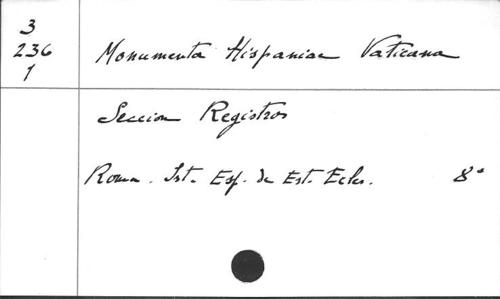 3
236 Monumenta Hispaniae Vaticana
1
Seccion Registros
Roma. Ist. Esp. de Est. Ecles. 8°